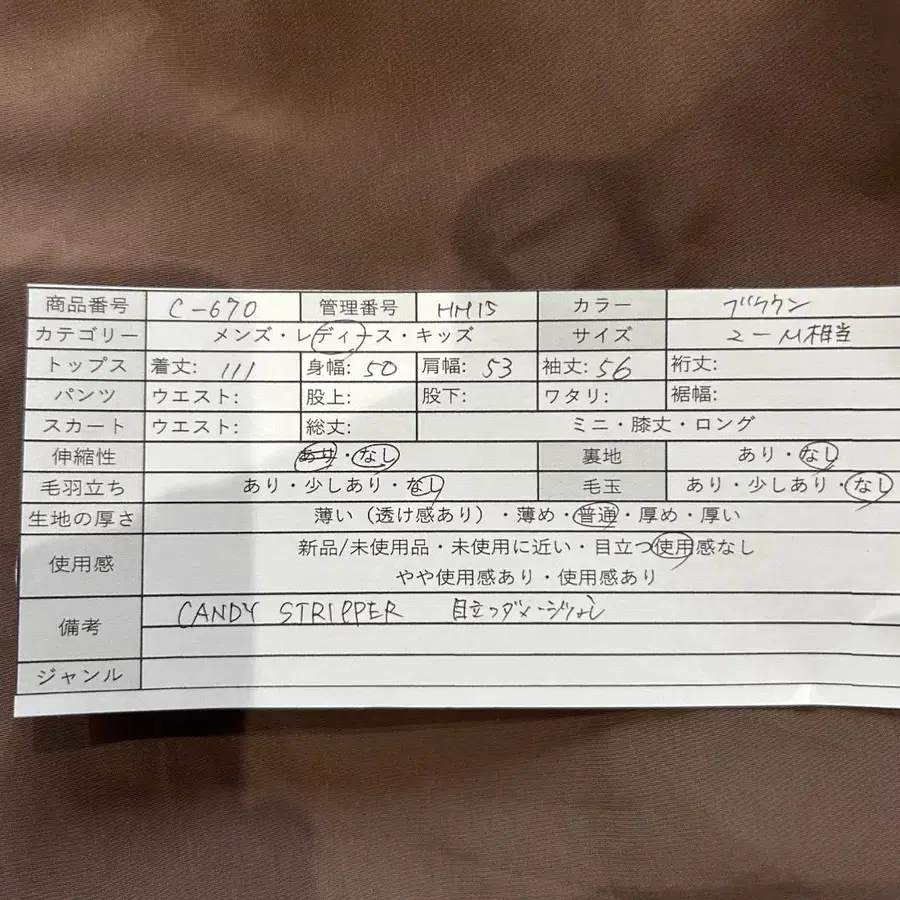 商品番号 C-670 管理番号 HM15 カラー ブラウン
カテゴリー メンズ・レディース・キッズ サイズ 2-M相当
トップス 着丈: 111 身幅: 50 肩幅: 53 袖丈: 56 裄丈:
パンツ ウエスト: 股上: 股下: ワタリ: 裾幅:
スカート ウエスト: 総丈: ミニ・膝丈・ロング
伸縮性 あり・なし 裏地 あり・なし
毛羽立ち あり・少しあり・なし 毛玉 あり・少しあり・なし
生地の厚さ 薄い（透け感あり）・薄め・普通・厚め・厚い
使用感 新品/未使用品・未使用に近い・目立つ使用感なし
やや使用感あり・使用感あり
備考 CANDY STRIPPER 目立つダメージなし
ジャンル